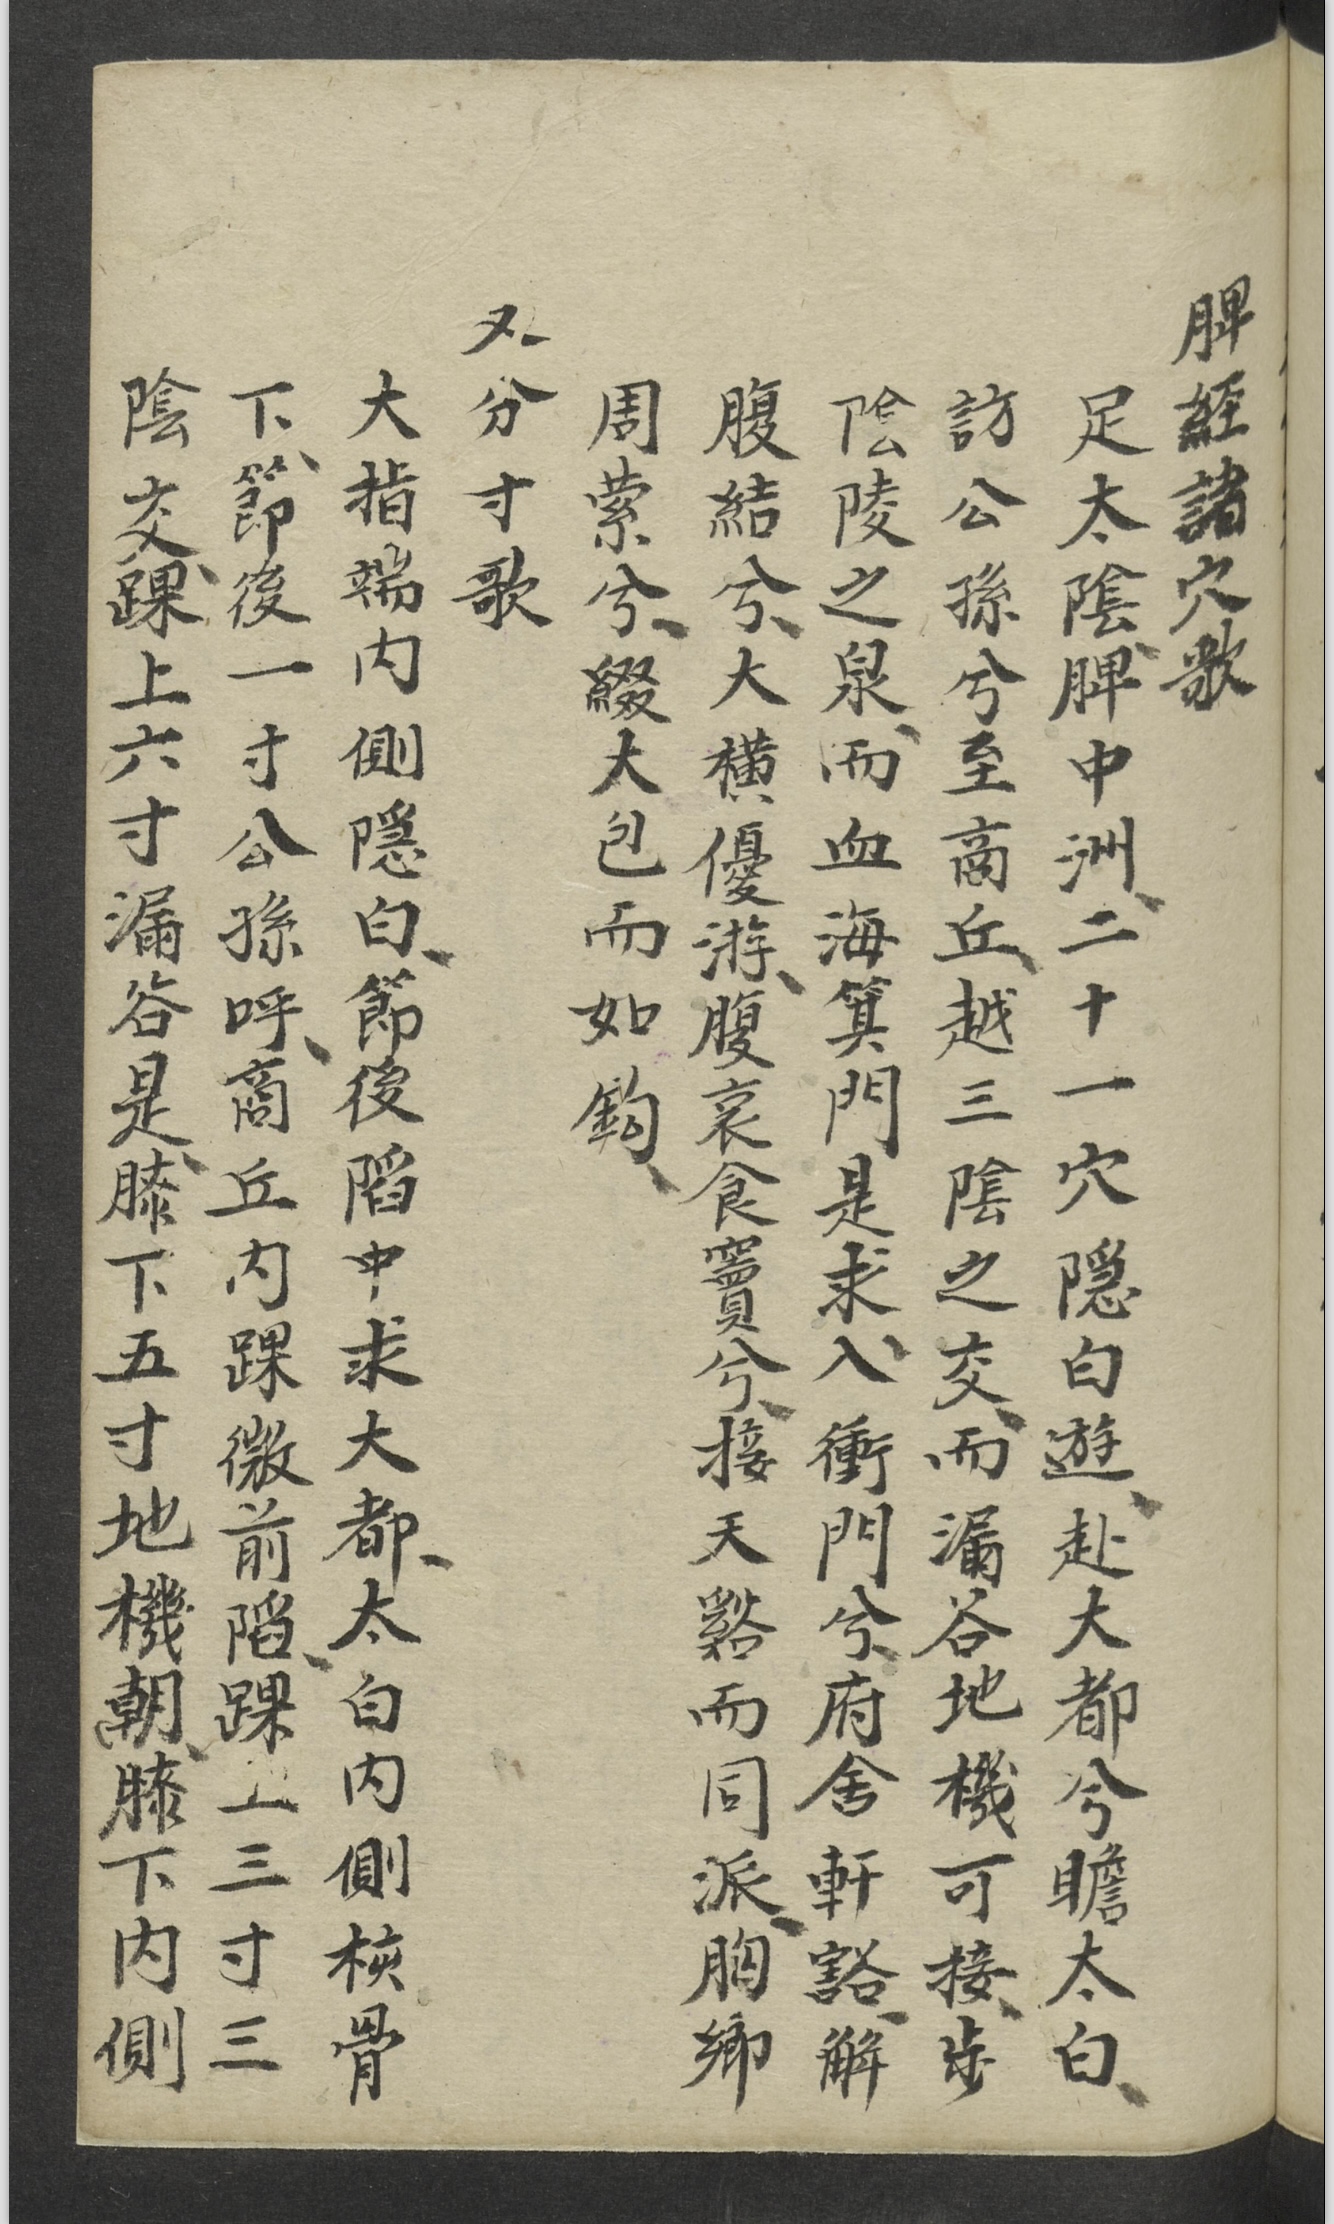 脾經諸穴歌
足太陰、脾中洲、二十一穴隱白遊、赴大都兮瞻太白、
訪公孫兮至商丘、越三陰之交、而漏谷地機可接、步
陰陵之泉、而血海箕門是求、入衝門兮、府舍軒豁、解
腹結兮、大橫優游、腹哀食竇兮、接天谿而同派、胸鄉
周榮兮、綴大包而如鈎、
又分寸歌
大指端內側隱白、節後陷中求大都、太白內側核骨
下、節後一寸公孫呼、商丘內踝微前陷、踝上三寸三
陰交、踝上六寸漏谷是、膝下五寸地機朝、膝下內側